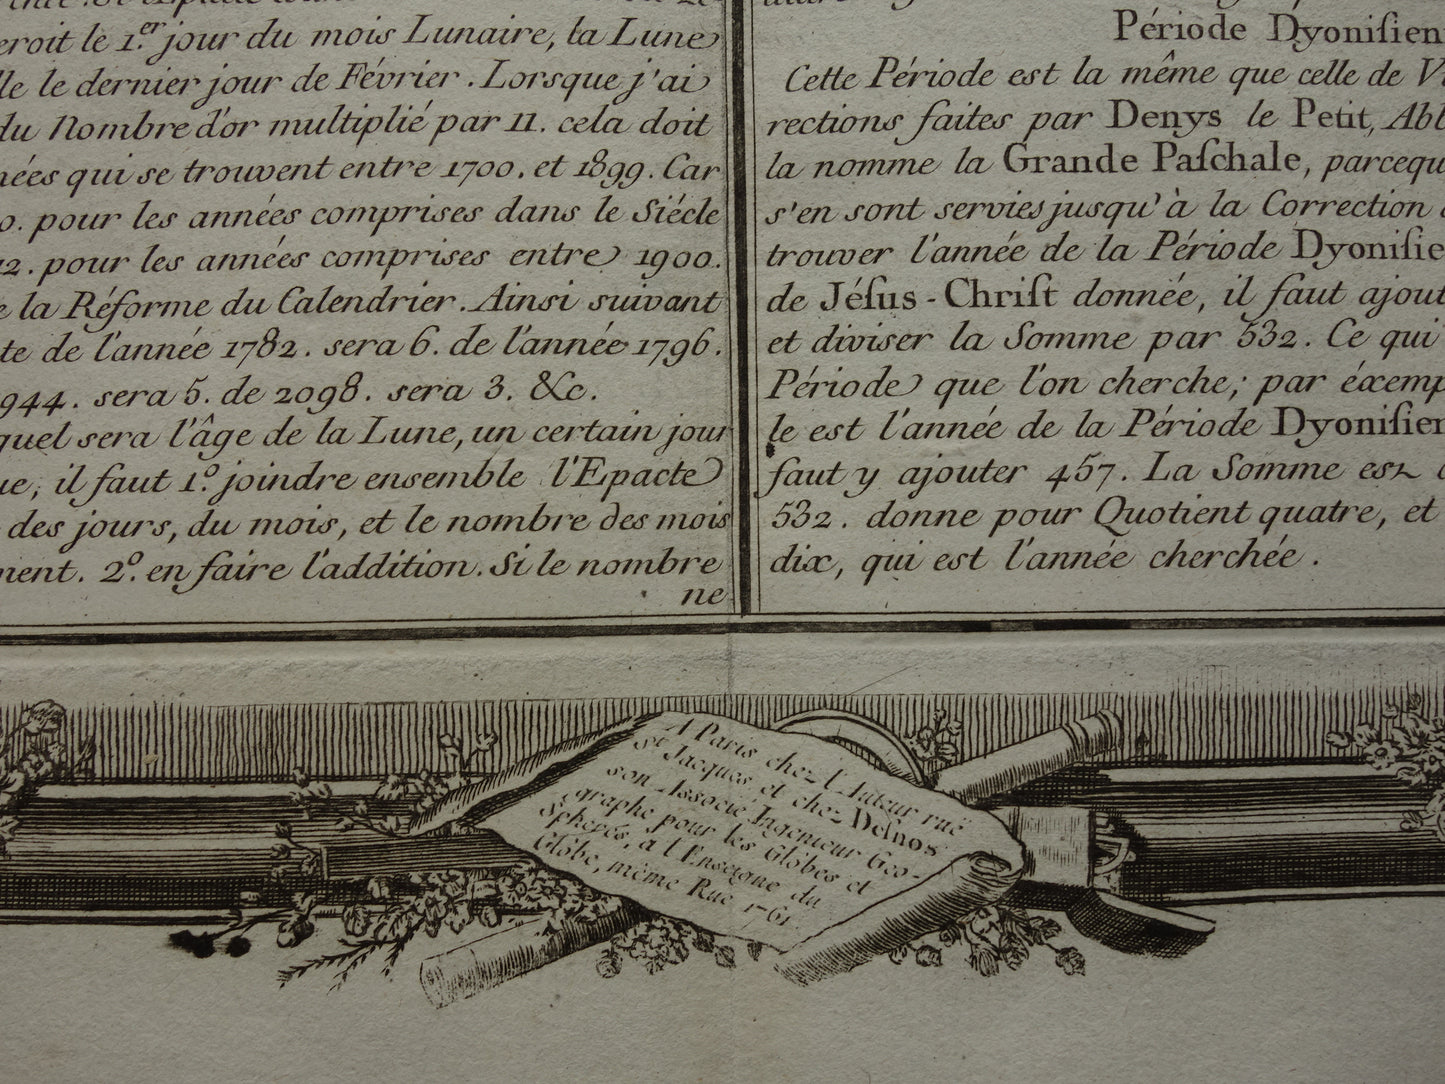 eroit le 1.er jour du mois Lunaire, la Lune
lle le dernier jour de Février. Lorsque j'ai
du Nombre d'or multiplié par 11. cela doit
nées qui se trouvent entre 1700. et 1899. Car
0. pour les années comprises dans le Siécle
12. pour les années comprises entre 1900.
e la Réforme du Calendrier. Ainsi suivant
te de l'année 1782. sera 6. de l'année 1796.
1944. sera 5. de 2098. sera 3. &c.
quel sera l'âge de la Lune, un certain jour
ue, il faut 1.o joindre ensemble l'Epacte
des jours, du mois, et le nombre des mois
ment. 2.o en faire l'addition. Si le nombre
ne
Période Dyonisien
Cette Période est la même que celle de V
rections faites par Denys le Petit, Abb
la nomme la Grande Paſchale, parcequ
s'en sont servies jusqu'à la Correction
trouver l'année de la Période Dyoniſie
de Jéſus-Chriſt donnée, il faut ajout
et diviser la Somme par 532. Ce qui
Période que l'on cherche; par éxemp
le est l'année de la Période Dyoniſien
faut y ajouter 457. La Somme est
532. donne pour Quotient quatre, et
dix, qui est l'année cherchée.
A Paris chez l'Auteur ruë
St Jacques, et chez Desnos
son Associé, Ingenieur Géo-
graphe pour les Globes et
Spheres, à l'Enseigne du
Globe, même Rue 1761.